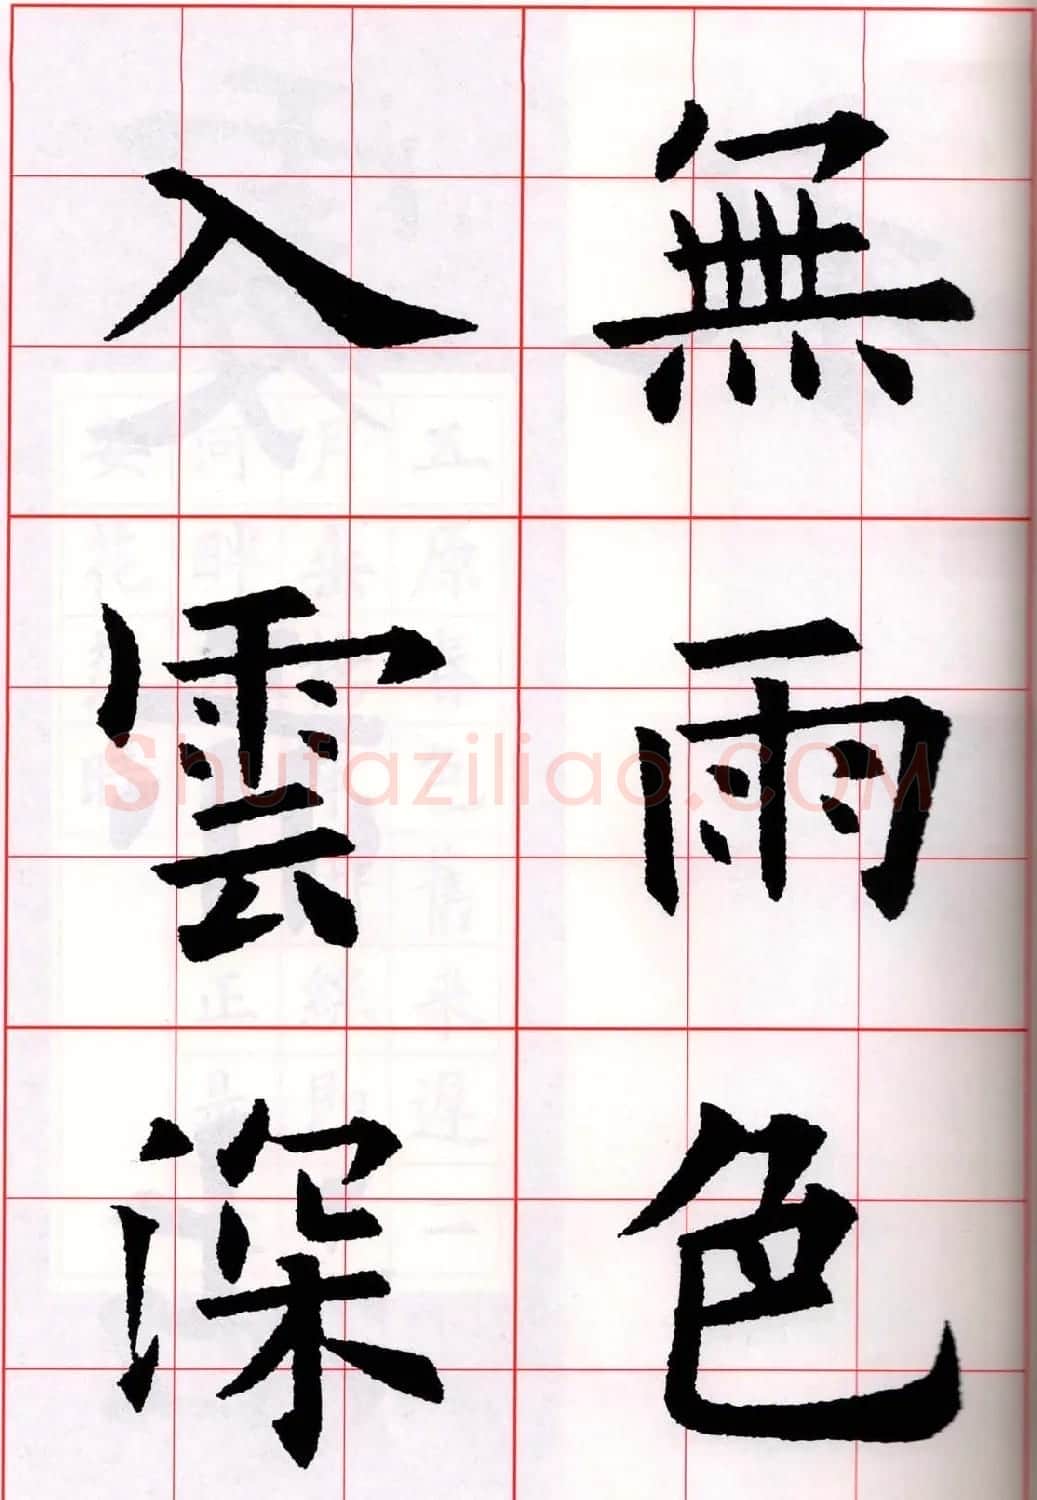 無雨色
入雲深
Shufaziliao.COM